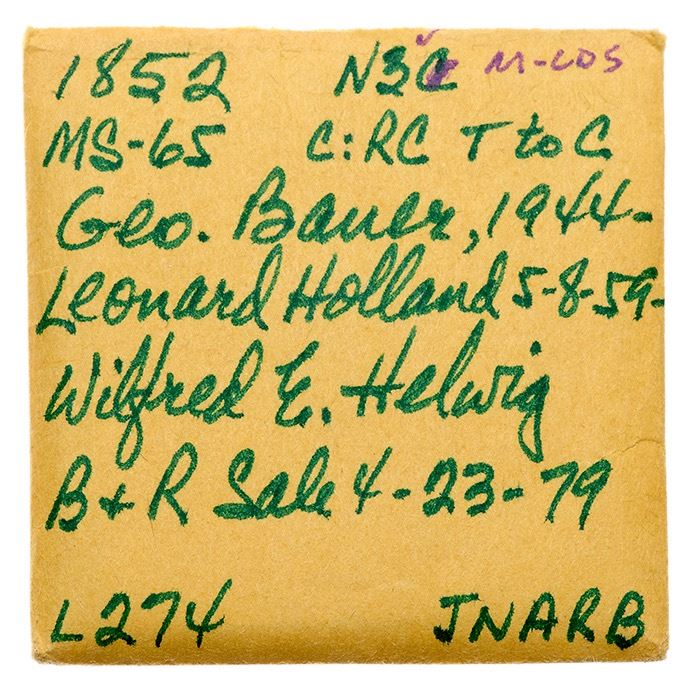 1852 N3C M-COS
MS-65 C:RC T to C
Geo. Bauer, 1944-
Leonard Holland 5-8-59-
Wilfred E. Helwig
B+R Sale 4-23-79
L274 JNARB